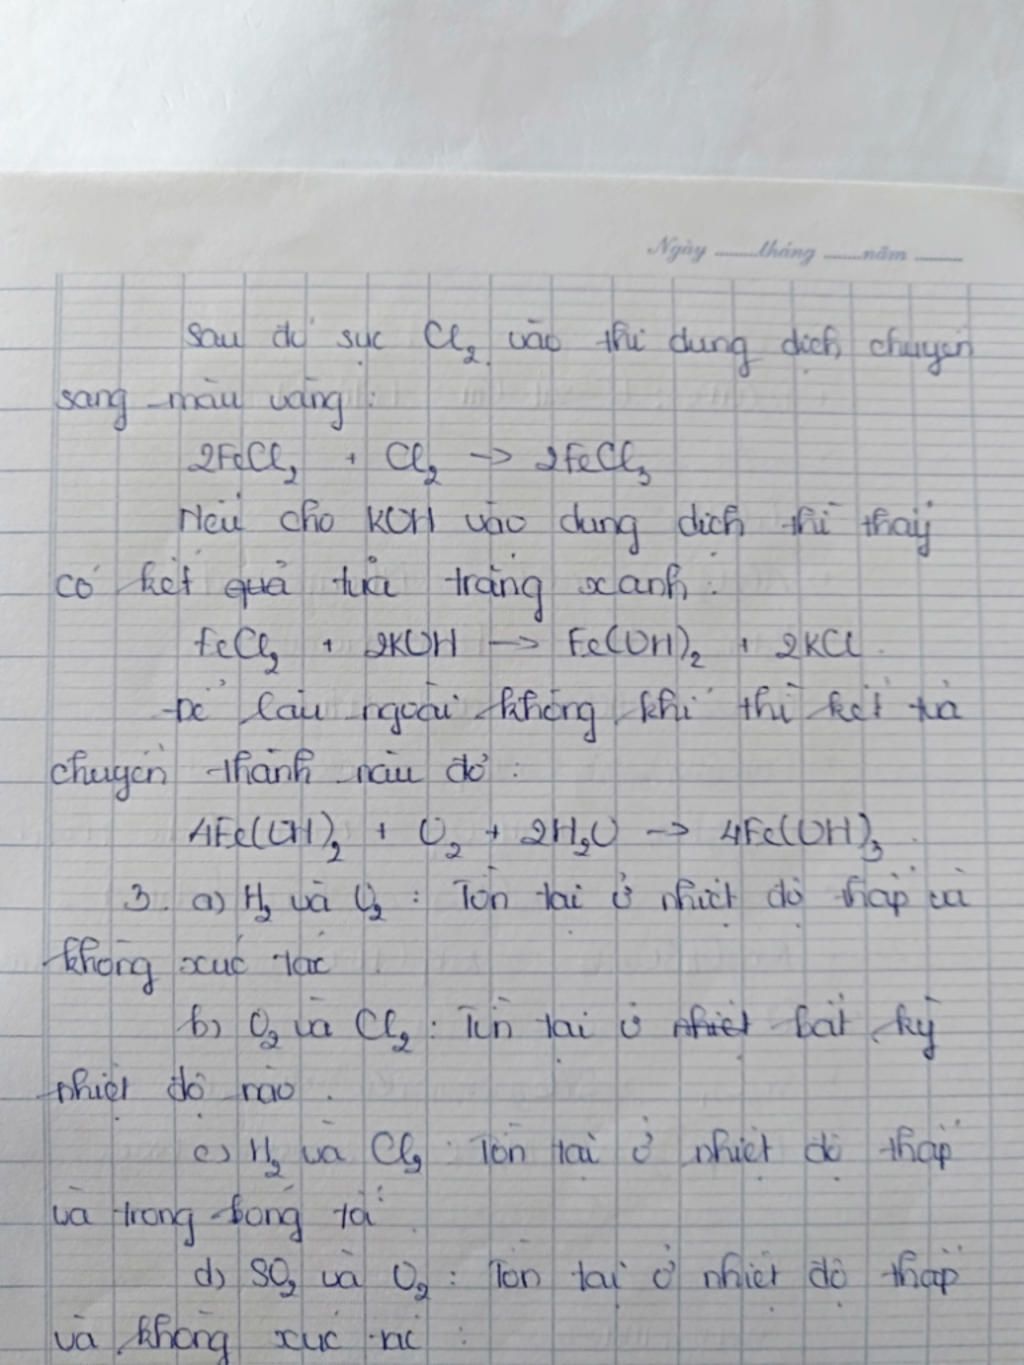 Ngày ........tháng ......năm ........
Sau đó sục Cl₂ vào thì dung dịch chuyển
sang màu vàng :
2FeCl₂ + Cl₂ → 2FeCl₃
Nếu cho KOH vào dung dịch thì thấy
có kết quả tủa trắng xanh :
FeCl₂ + 2KOH → Fe(OH)₂ + 2KCl .
Để lâu ngoài không khí thì kết tủa
chuyển thành nâu đỏ :
4Fe(OH)₂ + O₂ + 2H₂O → 4Fe(OH)₃ .
3. a) H₂ và O₂ : Tồn tại ở nhiệt độ thấp và
không xúc tác .
b) O₂ và Cl₂ : Tồn tại ở nhiệt bất kỳ
nhiệt độ nào .
c) H₂ và Cl₂ : Tồn tại ở nhiệt độ thấp
và trong bóng tối .
d) SO₂ và O₂ : Tồn tại ở nhiệt độ thấp
và không xúc tác :